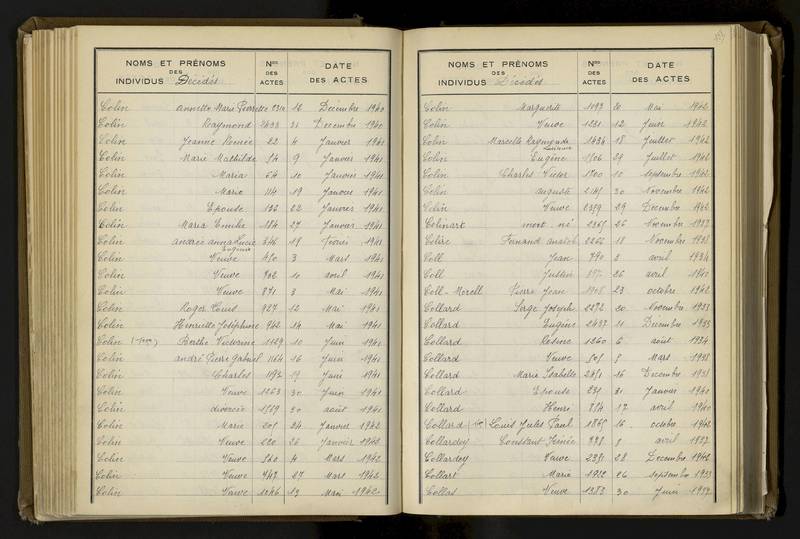 NOMS ET PRÉNOMS DES INDIVIDUS Décédés Nos DES ACTES DATE DES ACTES
Colin Annette Marie Pierrette 16 Décembre 1940
Colin Raymond 2433 31 Décembre 1940
Colin Jeanne Renée 22 4 Janvier 1941
Colin Marie Mathilde 54 9 Janvier 1941
Colin Maria 64 10 Janvier 1941
Colin Marie 114 19 Janvier 1941
Colin Epouse 136 22 Janvier 1941
Colin Maria Emilie 184 27 Janvier 1941
Colin Andrée Anna Lucie Eugénie 346 19 Février 1941
Colin Veuve 450 3 Mars 1941
Colin Veuve 702 10 Avril 1941
Colin Veuve 871 3 Mai 1941
Colin Roger Louis 927 12 Mai 1941
Colin Henriette Joséphine 942 14 Mai 1941
Colin Berthe Victorine 1129 10 Juin 1941
Colin André Pierre Gabriel 1164 16 Juin 1941
Colin Charles 1192 19 Juin 1941
Colin Veuve 1263 30 Juin 1941
Colin divorcée 1559 30 Août 1941
Colin Marie 205 24 Janvier 1942
Colin Veuve 220 26 Janvier 1942
Colin Veuve 560 4 Mars 1942
Colin Veuve 747 27 Mars 1942
Colin Veuve 1046 13 Mai 1942
NOMS ET PRÉNOMS DES INDIVIDUS Décédés Nos DES ACTES DATE DES ACTES
Colin Marguerite 1093 20 Mai 1942
Colin Veuve 1231 12 Juin 1942
Colin Marcelle Raymonde Lucienne 1434 18 Juillet 1942
Colin Eugène 1506 29 Juillet 1942
Colin Charles Victor 1700 10 Septembre 1942
Colin Auguste 2149 30 Novembre 1942
Colin Veuve 2359 29 Décembre 1942
Colinart mort né 2265 26 Novembre 1937
Colire Fernand Anatole 2262 18 Novembre 1938
Coll Jean 790 2 Avril 1934
Coll Justin 26 Avril 1941
Coll-Morell Pierre Jean 1908 23 Octobre 1942
Collard Serge Joseph 2272 20 Novembre 1933
Collard Eugène 2437 11 Décembre 1933
Collard Rosine 1260 6 Août 1934
Collard Veuve 505 8 Mars 1938
Collard Marie Isabelle 2451 16 Décembre 1938
Collard Epouse 231 31 Janvier 1940
Collard Henri 854 17 Avril 1940
Collard Louis Jules Paul 1865 16 Octobre 1942
Collardey Constant Irénée 778 8 Avril 1937
Collardey Veuve 2331 28 Décembre 1942
Collart Marie 1932 26 Septembre 1933
Collas Veuve 1383 30 Juin 1937